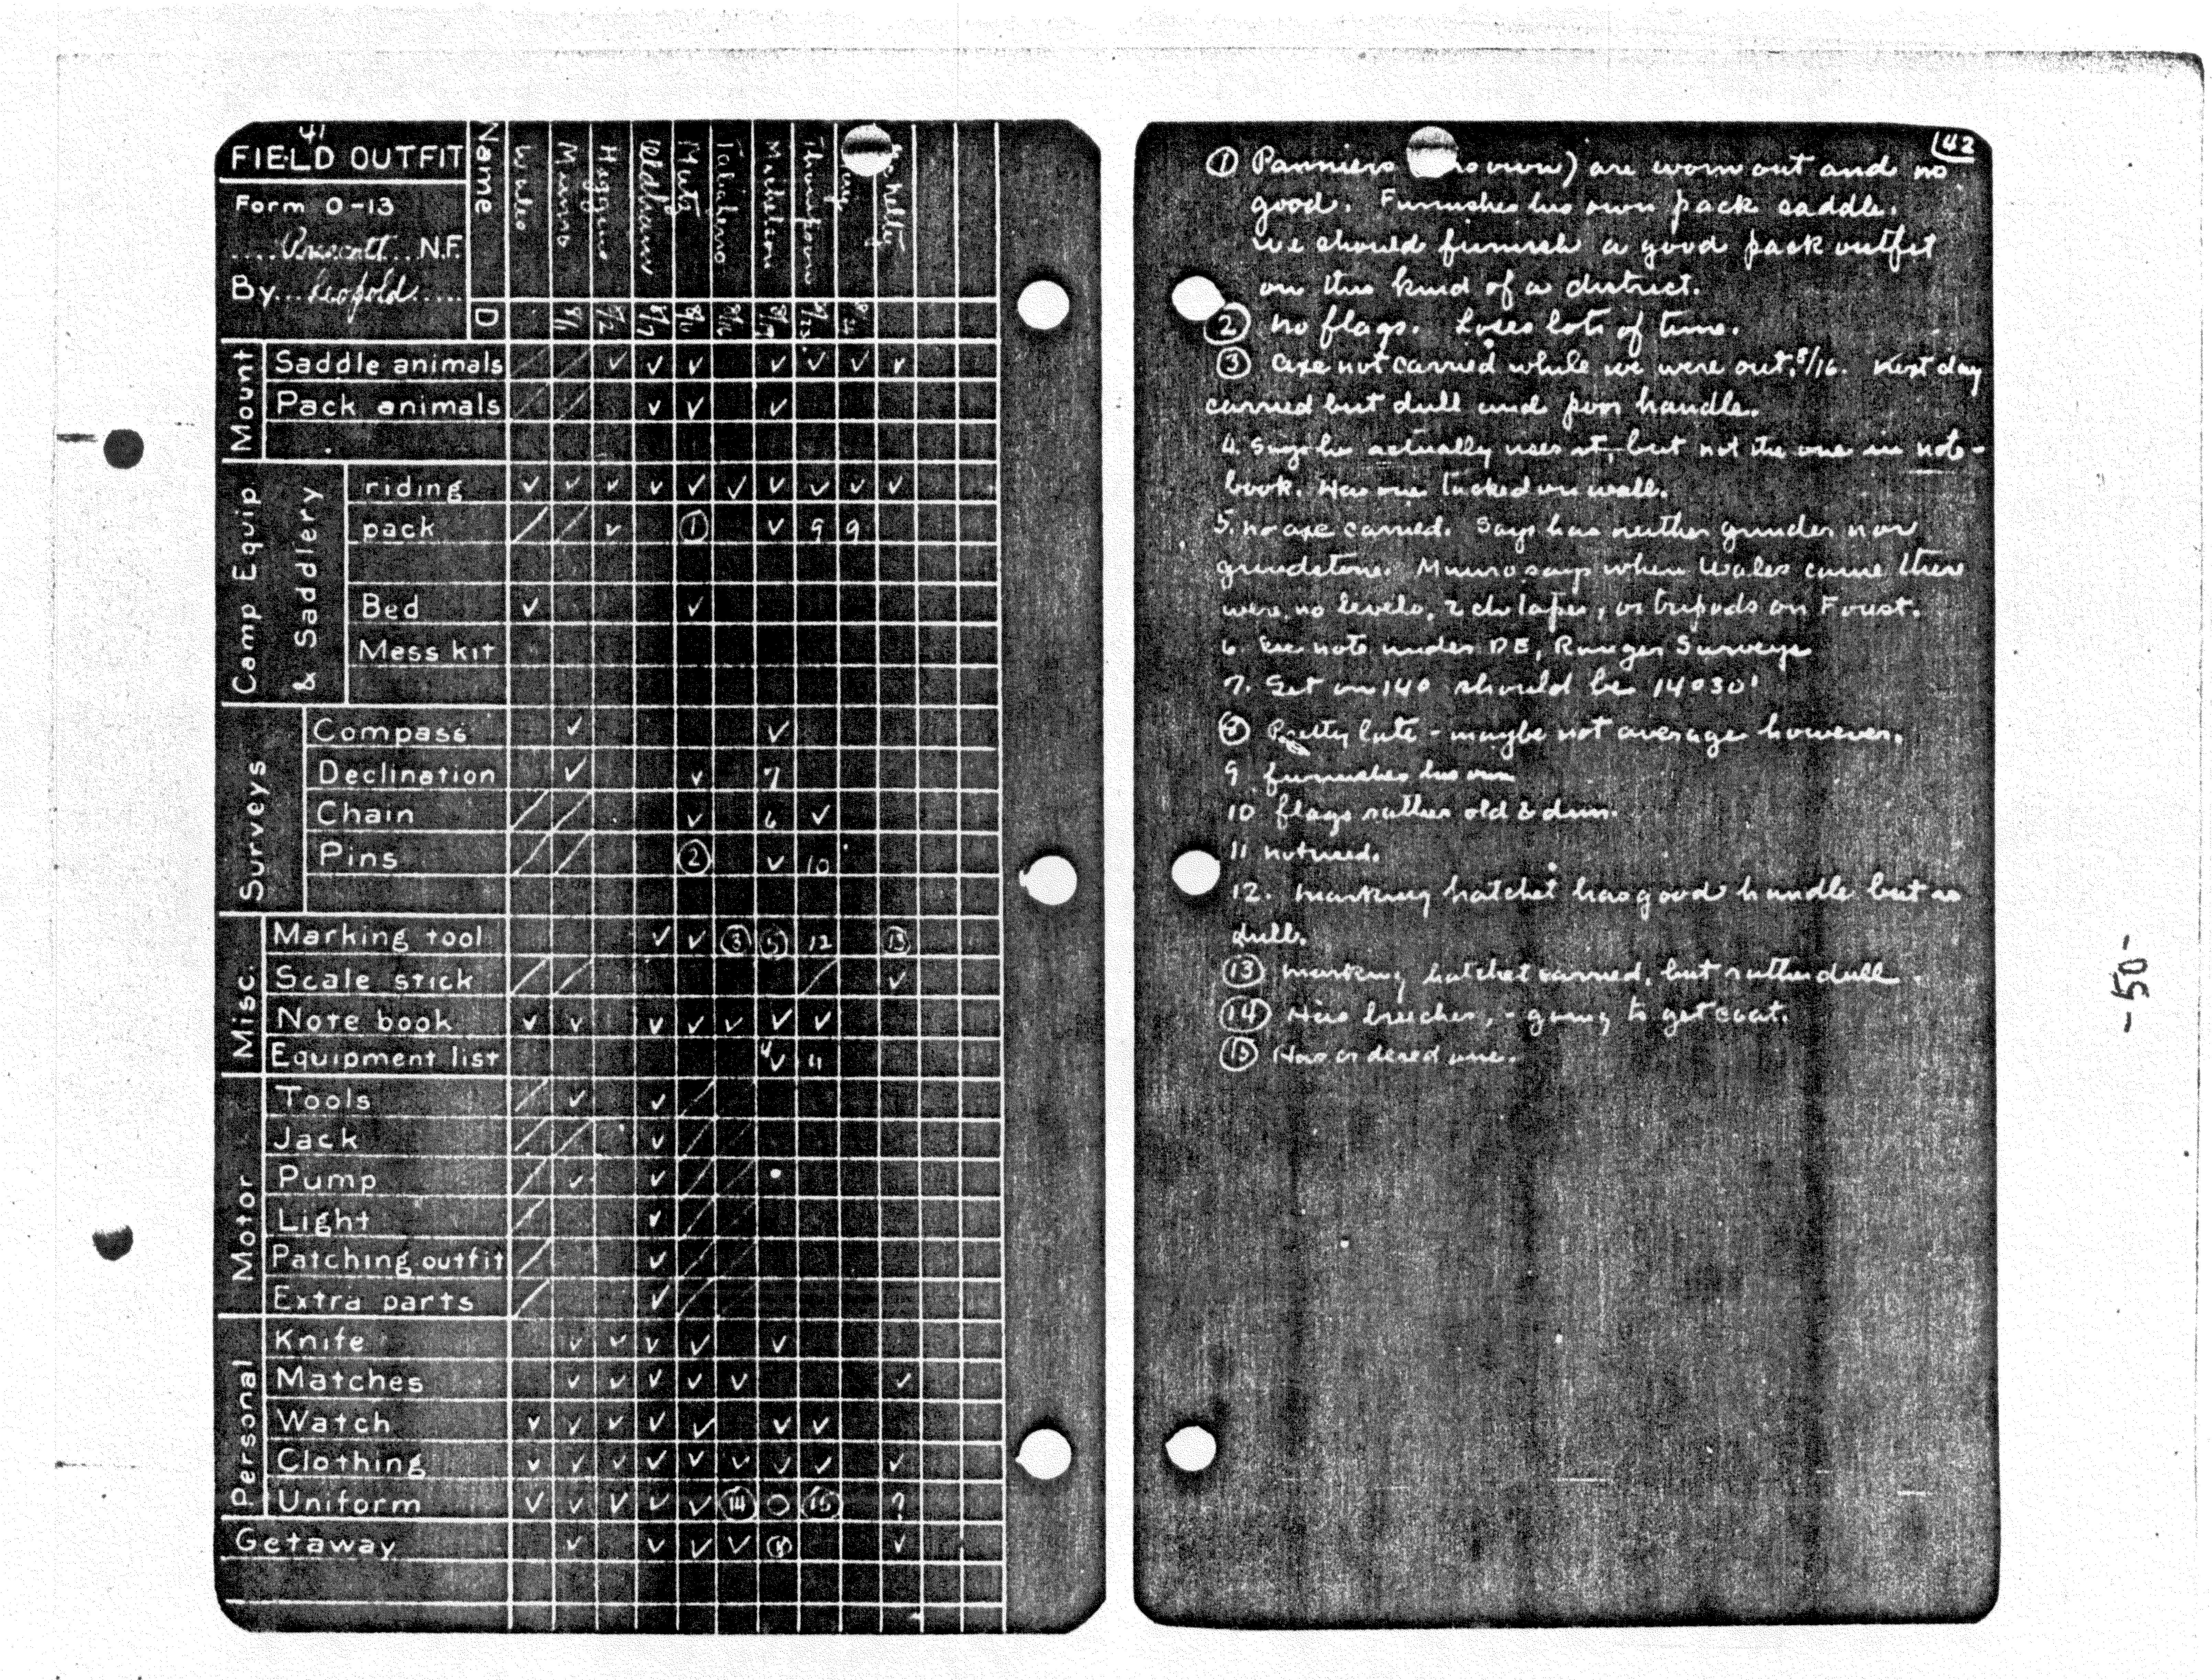 41
FIELD OUTFIT
Form O-13
....Prescott... N.F.
By...Leopold.....
Name
Wales
Munro
Oldham
Mutz
Matheson
D
8/1
8/2
8/7
Mount
Saddle animals / / ✓ ✓ ✓ ✓ ✓ ✓ ✓
Pack animals / / ✓ ✓ ✓
Camp Equip & Saddlery
riding ✓ ✓ ✓ ✓ ✓ ✓ ✓ ✓ ✓ ✓
pack / / ✓ ① ✓ 9 9
Bed ✓ ✓
Mess kit
Surveys
Compass ✓ ✓
Declination ✓ ✓ 7
Chain / / ✓ 6 ✓
Pins / / ② ✓ 10
Misc.
Marking tool ✓ ✓ ③ ⑤ 12 ⑬
Scale stick / / / ✓
Note book ✓ ✓ ✓ ✓ ✓ ✓ ✓
Equipment list 4✓ 11
Motor
Tools / ✓ ✓ /
Jack / / ✓ / /
Pump / ✓ ✓ / /
Light / ✓ / /
Patching outfit / ✓ / /
Extra parts / ✓ / /
Personal
Knife ✓ ✓ ✓ ✓ ✓
Matches ✓ ✓ ✓ ✓ ✓ ✓
Watch ✓ ✓ ✓ ✓ ✓ ✓ ✓
Clothing ✓ ✓ ✓ ✓ ✓ ✓ ✓ ✓ ✓
Uniform ✓ ✓ ✓ ✓ ✓ ⑭ O ⑮ ?
Getaway ✓ ✓ ✓ ✓ ⑧ ✓
42
① Panniers own) are worn out and no
good. Furnishes his own pack saddle.
We should furnish a good pack outfit
on this kind of a district.
② No flags. Loses lots of time.
③ Axe not carried while we were out, 8/16. Next day
carried but dull and poor handle.
4. Says he actually uses it, but not the one in note-
book. Has one tacked on wall.
5. No axe carried. Says has neither grinder nor
grindstone. Munro says when Wales came there
were no levels, 2 ch tapes, or tripods on Forest.
6. See note under DE, Ranger Surveys
7. Set on 140 should be 14°30'
⑧ Pretty late - maybe not average however.
9 furnishes his own
10 flags rather old & dim.
11 not used.
12. Marking hatchet has good handle but is
dull.
⑬ Marking hatchet carried, but rather dull
⑭ Has breeches, - going to get coat.
⑮ Has ordered one.
- 50 -